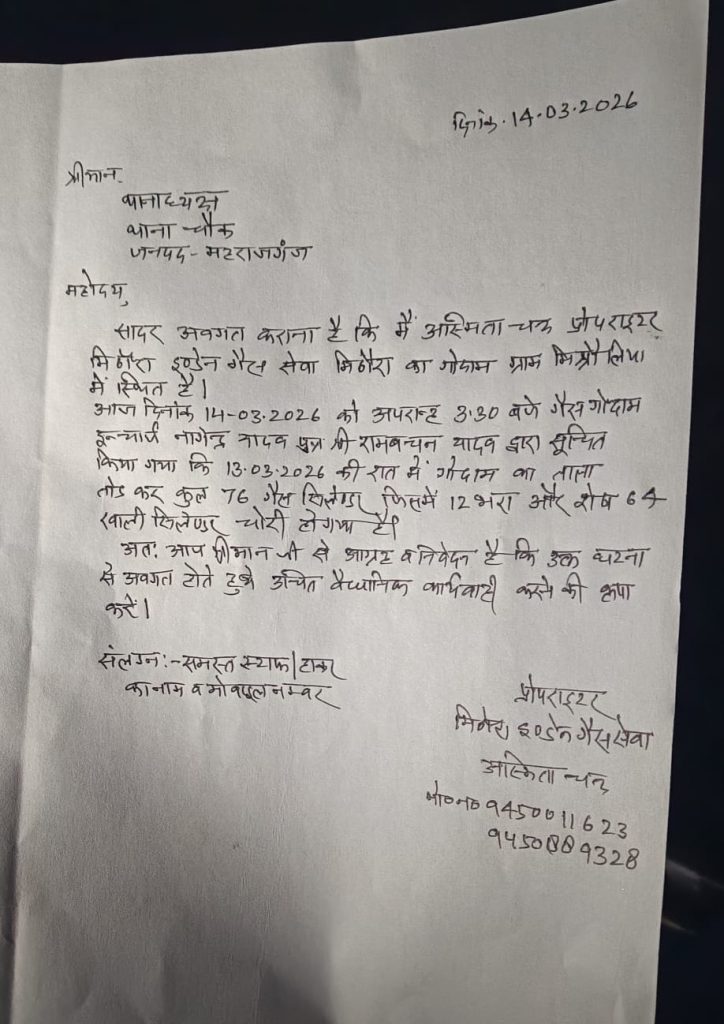 दिनांक. 14.03.2026
श्रीमान.
थानाध्यक्ष
थाना चौक
जनपद - महराजगंज
महोदय,
सादर अवगत कराना है कि मैं अस्मिता चन्द प्रोपराइटर
मिठौरा इण्डेन गैस सेवा मिठौरा का गोदाम ग्राम मिश्रौलिया
में स्थित है।
आज दिनांक 14-03.2026 को अपरान्ह 3:30 बजे गैस गोदाम
इन्चार्ज नागेन्द्र यादव पुत्र श्री रामबचन यादव द्वारा सूचित
किया गया कि 13.03.2026 की रात में गोदाम का ताला
तोड कर कुल 76 गैस सिलेण्डर जिसमें 12 भरा और शेष 64
खाली सिलेण्डर चोरी हो गया है।
अतः आप श्रीमान जी से आग्रह व निवेदन है कि उक्त घटना
से अवगत होते हुये उचित वैधानिक कार्यवाही करने की कृपा
करें।
संलग्न:- समस्त स्टाफ/हाकर
का नाम व मोबाइल नम्बर
प्रोपराइटर
मिठौरा इण्डेन गैस सेवा
अस्मिता चन्द
मो0न0 9450011623
9328